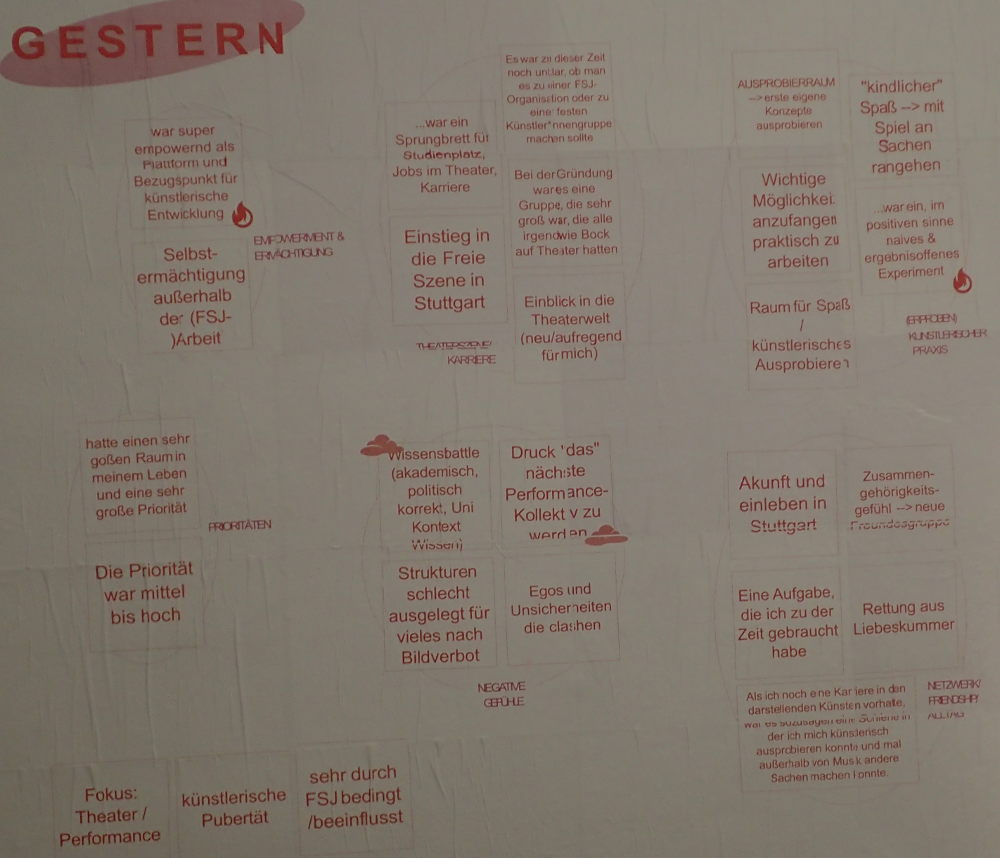 GESTERN
war super
empowernd als
Plattform und
Bezugspunkt für
künstlerische
Entwicklung
Selbst-
ermächtigung
außerhalb
der (FSJ-
)Arbeit
EMPOWERMENT &
ERMÄCHTIGUNG
...war ein
Sprungbrett für
Studienplatz,
Jobs im Theater,
Karriere
Es war zu dieser Zeit
noch unklar, ob man
es zu einer FSJ-
Organisation oder zu
einer festen
Künstler*nnengruppe
machen sollte
Einstieg in
die Freie
Szene in
Stuttgart
Bei der Gründung
war es eine
Gruppe, die sehr
groß war, die alle
irgendwie Bock
auf Theater hatten
Einblick in die
Theaterwelt
(neu/aufregend
für mich)
THEATERSZENE/
KARRIERE
AUSPROBIERRAUM
--> erste eigene
Konzepte
ausprobieren
"kindlicher"
Spaß --> mit
Spiel an
Sachen
rangehen
Wichtige
Möglichkeit
anzufangen
praktisch zu
arbeiten
...war ein, im
positiven sinne
naives &
ergebnisoffenes
Experiment
Raum für Spaß
/
künstlerisches
Ausprobieren
(ERPROBEN)
KÜNSTLERISCHER
PRAXIS
hatte einen sehr
goßen Raum in
meinem Leben
und eine sehr
große Priorität
Die Priorität
war mittel
bis hoch
PRIORITÄTEN
Wissensbattle
(akademisch,
politisch
korrekt, Uni
Kontext
Wissen)
Druck "das"
nächste
Performance-
Kollektiv zu
werden
Strukturen
schlecht
ausgelegt für
vieles nach
Bildverbot
Egos und
Unsicherheiten
die clashen
NEGATIVE
GEFÜHLE
Akunft und
einleben in
Stuttgart
Zusammen-
gehörigkeits-
gefühl --> neue
Freundesgruppe
Eine Aufgabe,
die ich zu der
Zeit gebraucht
habe
Rettung aus
Liebeskummer
Als ich noch eine Karriere in den
darstellenden Künsten vorhatte,
war es sozusagen eine Schiene in
der ich mich künstlerisch
ausprobieren konnte und mal
außerhalb von Musik andere
Sachen machen konnte.
NETZWERK/
FRIENDSHIP/
ALLTAG
Fokus:
Theater /
Performance
künstlerische
Pubertät
sehr durch
FSJ bedingt
/beeinflusst